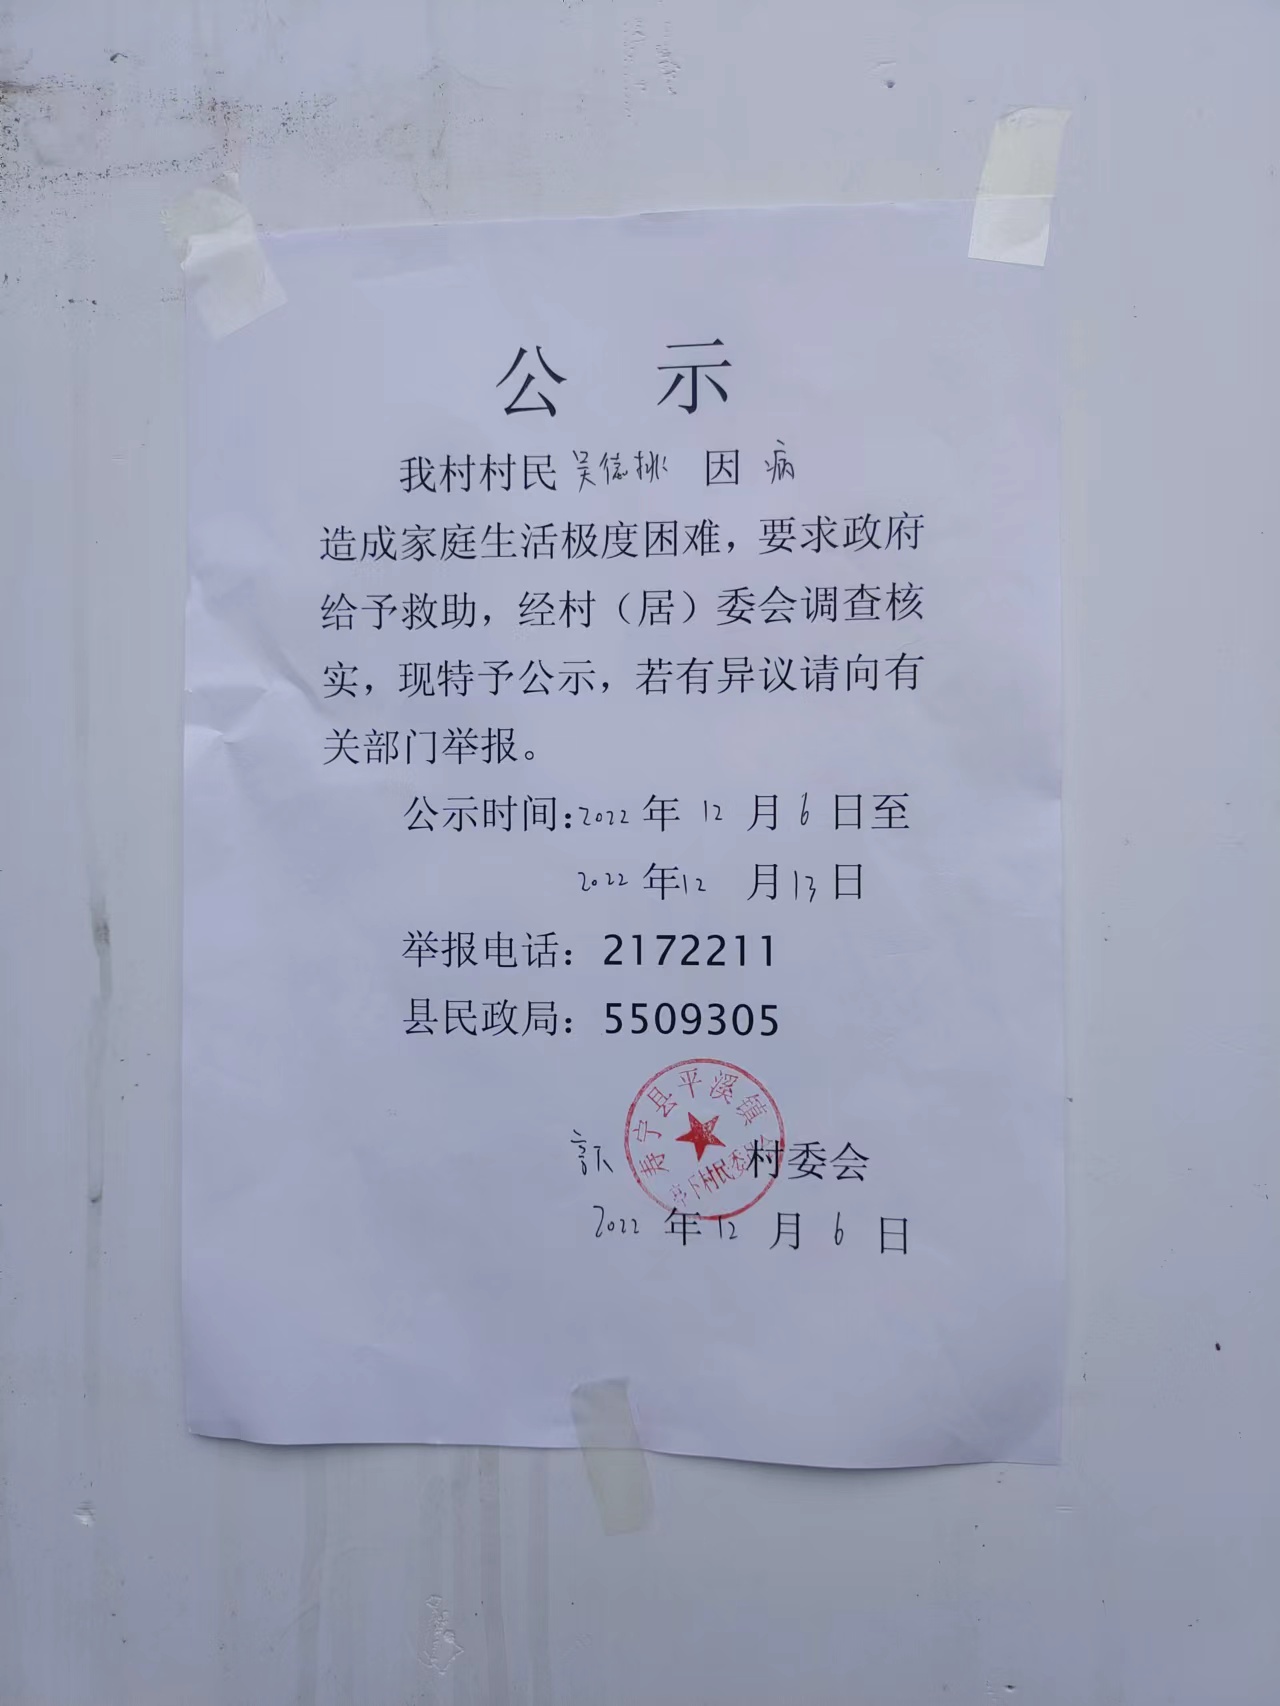 公 示
我村村民吴德桃 因 病
造成家庭生活极度困难，要求政府
给予救助，经村（居）委会调查核
实，现特予公示，若有异议请向有
关部门举报。
公示时间:2022年 12 月 6 日至
2022 年12 月13日
举报电话：2172211
县民政局：5509305
寿宁县平溪镇
亭下村民委员会
亭下 村委会
2022 年12 月 6 日